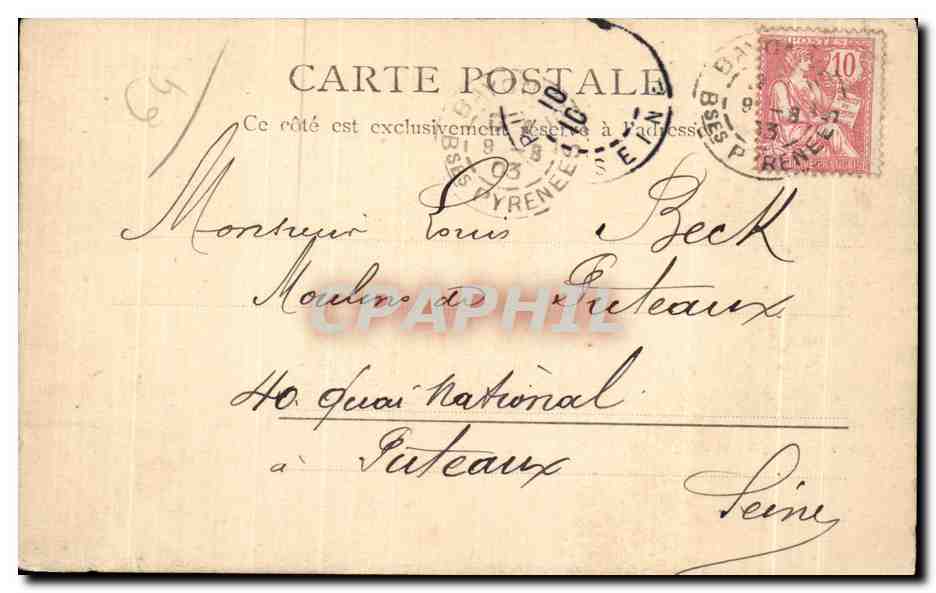 64
CARTE POSTALE
Ce côté est exclusivement réservé à l'adresse
POSTES
10
BAYO
9 -8
03
Bses PYRENEES
BAY
9 -8
03
Bses PYRENEES
10
10
SEINE
Monsieur Louis Beck
Moulins de Puteaux
40 Quai National
à Puteaux
Seine
CPAPHIL